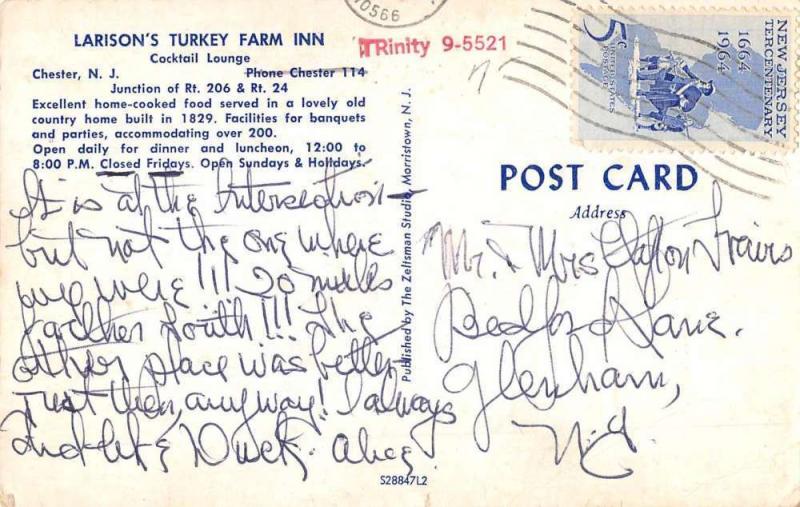 LARISON'S TURKEY FARM INN
Cocktail Lounge
Chester, N. J. Phone Chester 114
TRinity 9-5521
Junction of Rt. 206 & Rt. 24
Excellent home-cooked food served in a lovely old
country home built in 1829. Facilities for banquets
and parties, accommodating over 200.
Open daily for dinner and luncheon, 12:00 to
8:00 P.M. Closed Fridays. Open Sundays & Holidays.
It is at the Intersection—
but not the one where
we were!!! 20 miles
farther South!!! The
other place was better
just then, anyway! I always
Duck.
S28847L2
Published by The Zeltsman Studio, Morristown, N. J.
10566
5c
UNITED STATES POSTAGE
1664
1964
NEW JERSEY
TERCENTENARY
POST CARD
Address
Mr. & Mrs Clayton Travis
Bedford Lane.
Glenham,
N.Y.